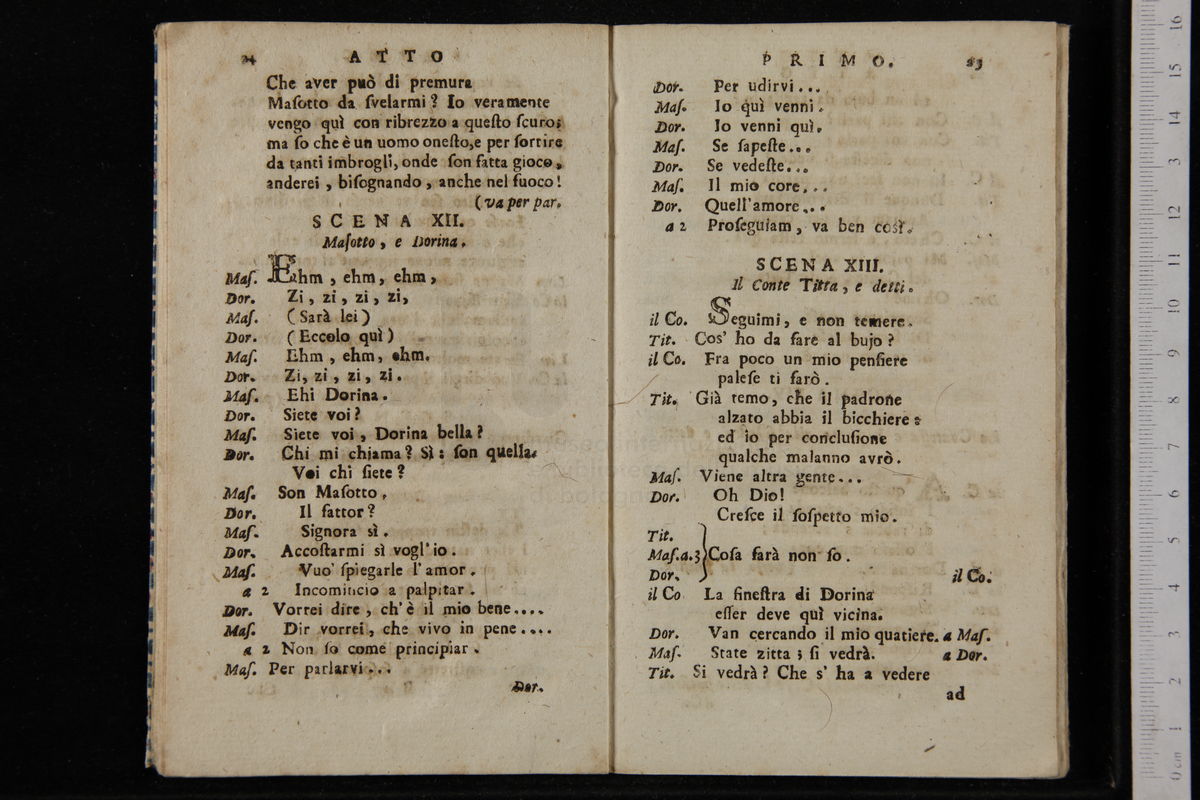 24 ATTO
Che aver può di premura
Maſotto da ſvelarmi? Io veramente
vengo quì con ribrezzo a queſto ſcuro;
ma ſo che è un uomo oneſto, e per ſortire
da tanti imbroglj, onde ſon fatta gioco,
anderei, biſognando, anche nel fuoco!
(va per par.
SCENA XII.
Maſotto, e Dorina.
Maſ. Ehm, ehm, ehm,
Dor. Zi, zi, zi, zi,
Maſ. (Sarà lei)
Dor. (Eccolo quì)
Maſ. Ehm, ehm, ehm.
Dor. Zi, zi, zi, zi.
Maſ. Ehi Dorina.
Dor. Siete voi?
Maſ. Siete voi, Dorina bella?
Dor. Chi mi chiama? Sì: ſon quella.
Voi chi ſiete?
Maſ. Son Maſotto.
Dor. Il fattor?
Maſ. Signora sì.
Dor. Accoſtarmi sì vogl'io.
Maſ. Vuo' ſpiegarle l'amor.
a 2 Incomincio a palpitar.
Dor. Vorrei dire, ch'è il mio bene....
Maſ. Dir vorrei, che vivo in pene....
a 2 Non ſo come principiar.
Maſ. Per parlarvi...
Dor.
PRIMO. 25
Dor. Per udirvi...
Maſ. Io quì venni.
Dor. Io venni quì.
Maſ. Se ſapeſte...
Dor. Se vedeſte...
Maſ. Il mio core...
Dor. Quell'amore...
a 2 Proſeguiam, va ben così.
SCENA XIII.
Il Conte Titta, e detti.
il Co. Seguimi, e non temere.
Tit. Cos' ho da fare al bujo?
il Co. Fra poco un mio penſiere
paleſe ti farò.
Tit. Già temo, che il padrone
alzato abbia il bicchiere:
ed io per concluſione
qualche malanno avrò.
Maſ. Viene altra gente...
Dor. Oh Dio!
Creſce il ſoſpetto mio.
Tit.
Maſ. a. 3 Coſa farà non ſo.
Dor. il Co.
il Co La fineſtra di Dorina
eſſer deve quì vicina.
Dor. Van cercando il mio quatiere. a Maſ.
Maſ. State zitta; ſi vedrà. a Dor.
Tit. Si vedrà? Che s' ha a vedere
ad
16
15
14
13
12
11
10
9
8
7
6
5
4
3
2
1
0 cm